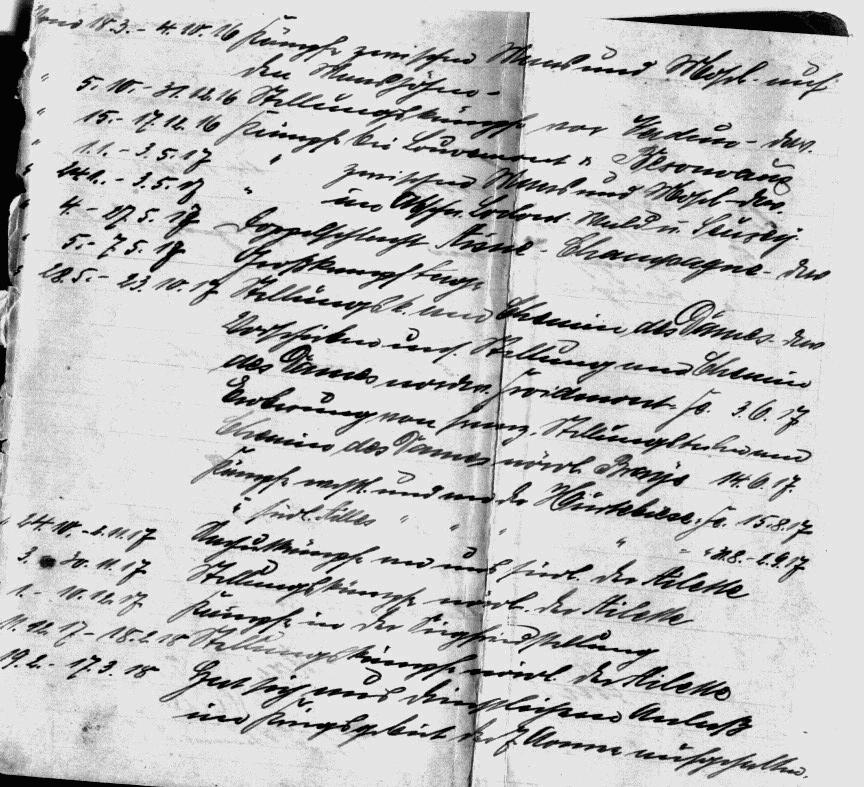 Vom 18.3. - 4.10.16 Kämpfe zwischen Maas und Mosel auf
den Maashöhen -
" 5.10. - 31.12.16 Stellungskämpfe vor Verdun - dav.
" 15. - 17.12.16 Kämpfe bei Louvemont u. Bezonvaux
" 1.1. - 3.5.17 " zwischen Maas und Mosel - dav.
" - 3.5.17 " im Abschn. Wald u.
" 4. - 27.5.17 Doppelschlacht Aisne - Champagne - dav
" 5. - 7.5.17 Großkampftage
" 28.5. - 23.10.17 Stellungsk. am Chemin des Dames - dav
Vorschieben uns. Stellung am Chemin
des Dames nordw. Froidmont Fe. 3.6.17
Eroberung von franz. Stellungsteilen am
Chemin des Dames nördl. Braye 14.6.17.
Kämpfe westl. und an der Hurtebise Fe. 15.8.17
" südl. Ailles " " " " " 31.8. - 1.9.17
" 24.10. - 2.11.17 Nachhutkämpfe an und südl. der Ailette
3. - 30.11.17 Stellungskämpfe nördl. der Ailette
1. - 10.12.17 Kämpfe in der Siegfriedstellung
11.12.17 - 18.2.18 Stellungskämpfe nördl. der Ailette
19.2. - 17.3.18 Hat sich aus dienstlichem Anlaß
im Kriegsgebiet der 7. Armee aufgehalten.